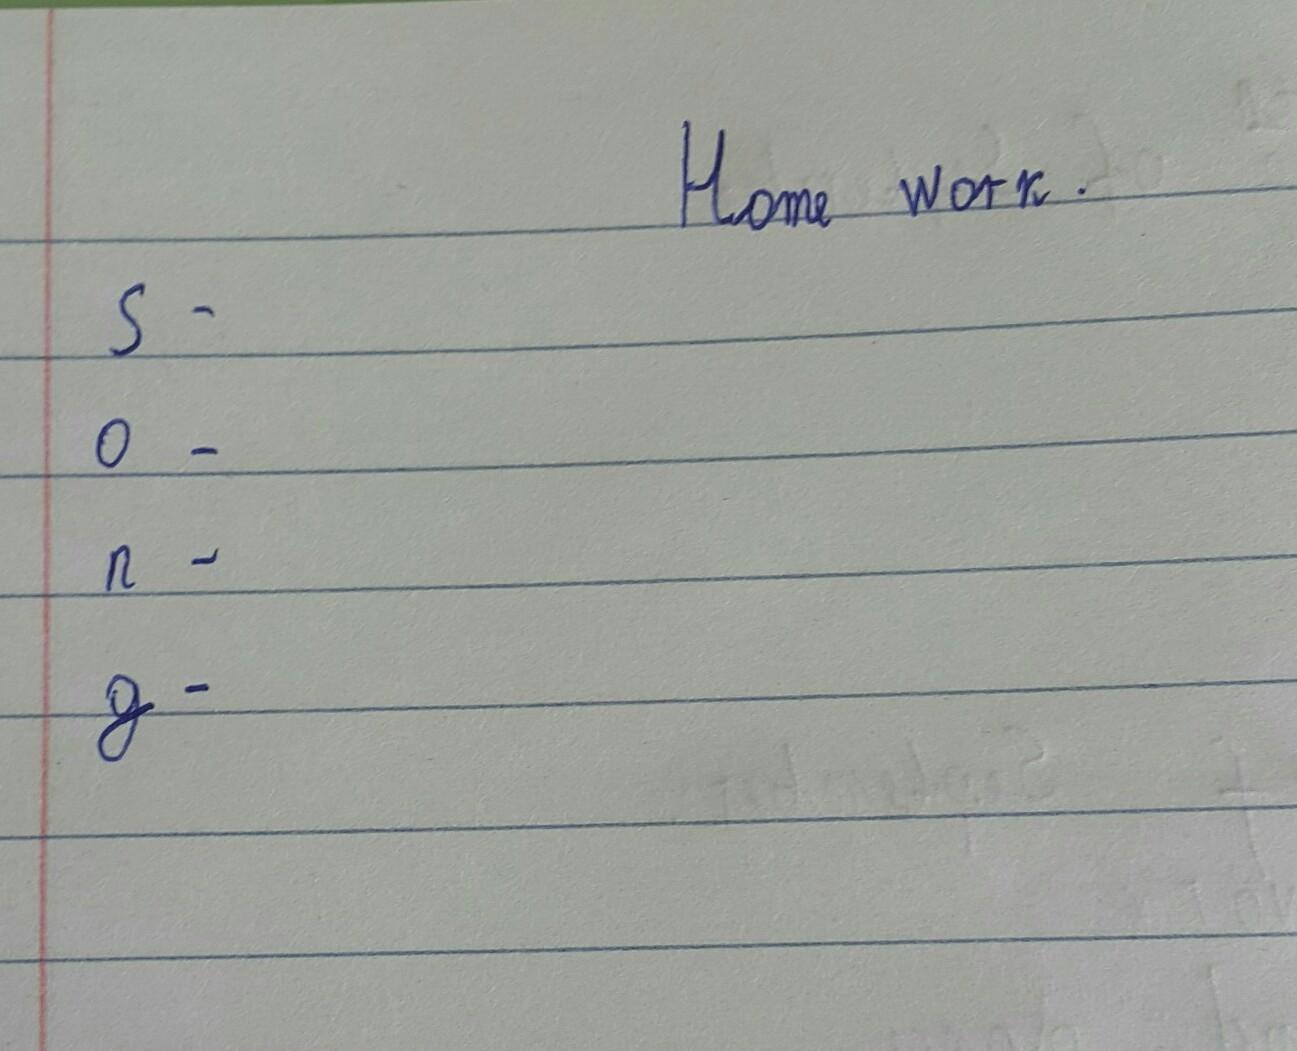 Home work.
S -
O -
n -
g -